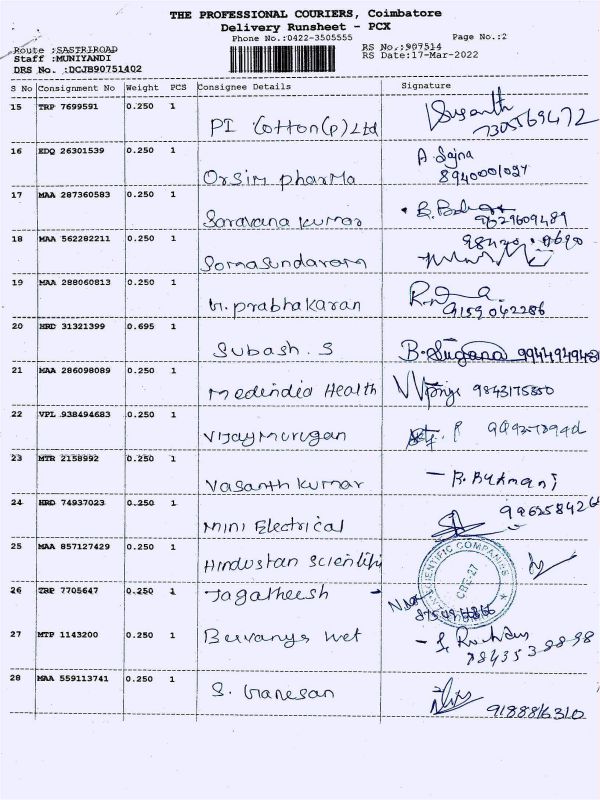 THE PROFESSIONAL COURIERS, Coimbatore
Delivery Runsheet - PCX
Phone No.:0422-3505555 Page No.:2
Route :SASTRIROAD RS No,:907514
Staff :MUNIYANDI RS Date:17-Mar-2022
DRS No. :DCJB90751402
S No Consignment No Weight PCS Consignee Details Signature
15 TRP 7699591 0.250 1 PI Cotton(p)Ltd Susanth
16 EDQ 26301539 0.250 1 Orsim pharma A Sajna
8940001097
17 MAA 287360583 0.250 1 Saravana kumar
9629609489
18 MAA 562282211 0.250 1 Somasundaram
19 MAA 288060813 0.250 1 M.prabhakaran
9159042286
20 HRD 31321399 0.695 1 Subash. S B. Sugana
21 MAA 286098089 0.250 1 medindia Health 9843175850
22 VPL 938494683 0.250 1 Vijaymurugan
23 MTR 2158992 0.250 1 Vasanth kumar
24 HRD 74937023 0.250 1 Mini Electrical
25 MAA 857127429 0.250 1 Hindustan Scientific
SCIENTIFIC COMPANIES
26 TRP 7705647 0.250 1 Jagatheesh
27 MTP 1143200 0.250 1
28 MAA 559113741 0.250 1 S. Ganesan
9188816310